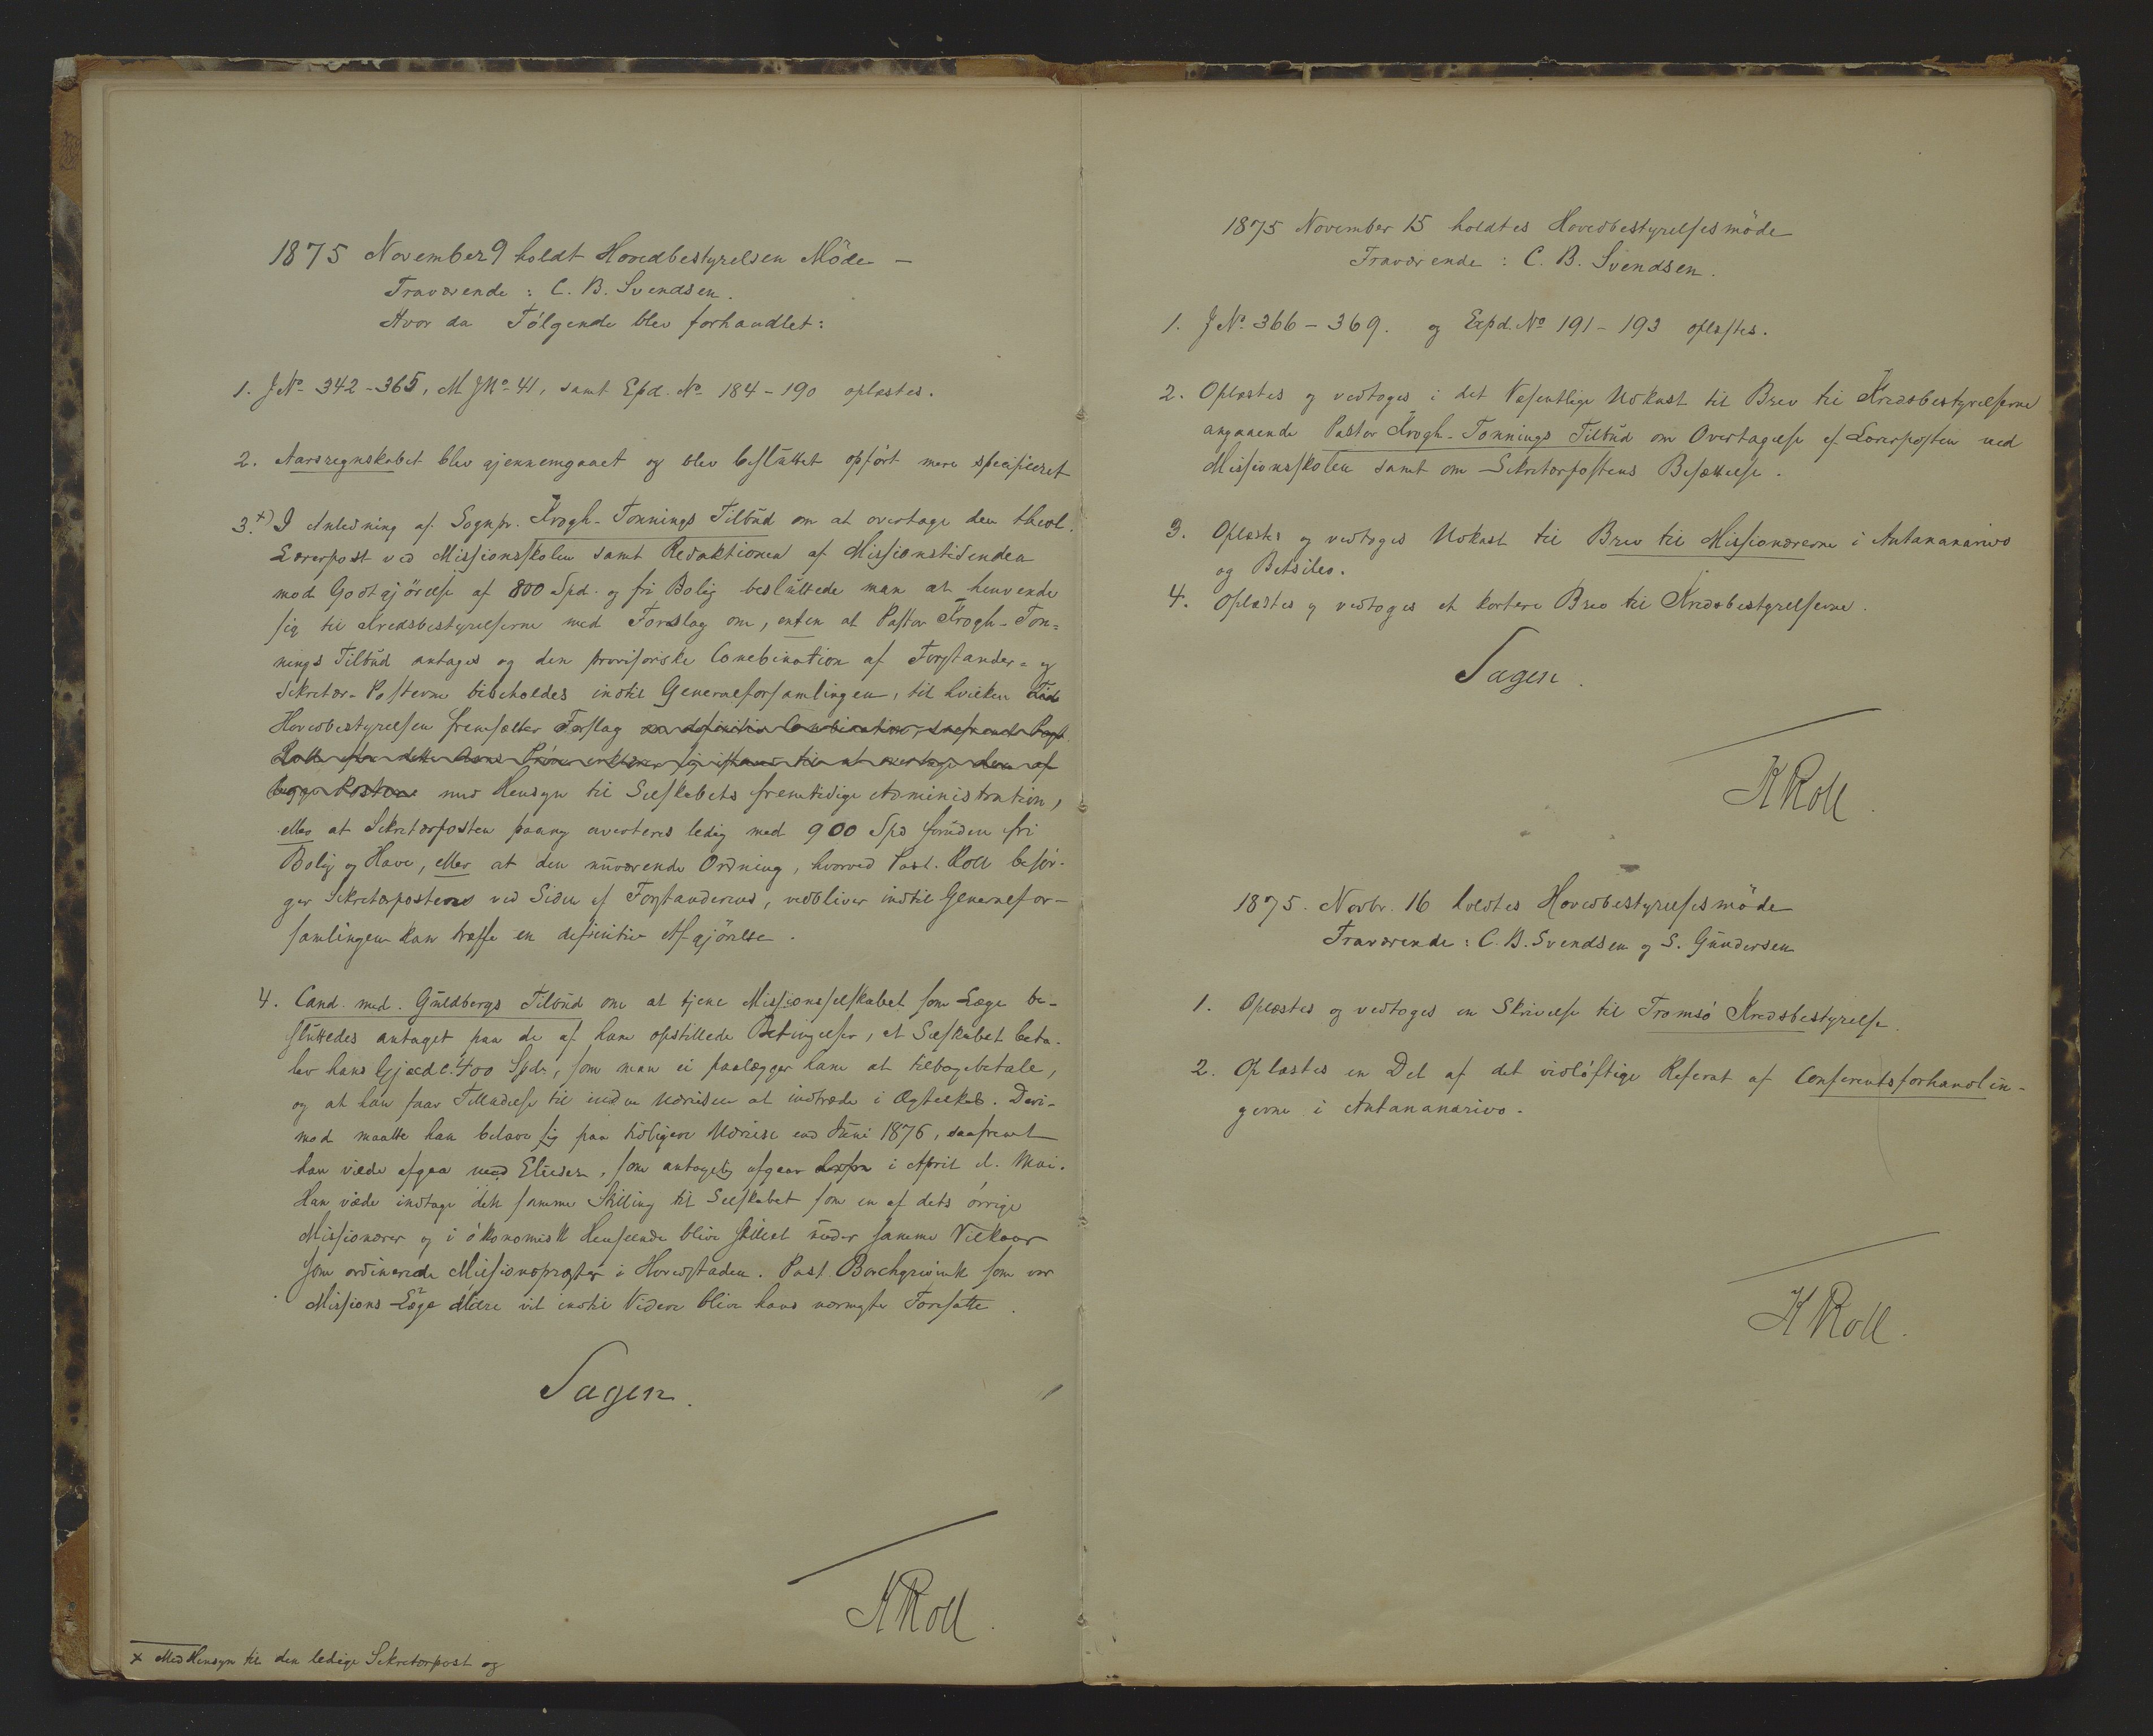 1875 November 9 holdt Hovedbestyrelsen Möde –
Fraværende : C. B. Svendsen.
Hvor da Følgende blev forhandlet:
1. J№ 342-365, M J№ 41, samt Epd. № 184-190 oplæstes.
2. Aarsregnskabet blev gjennemgaaet og blev besluttet opført mere specificeret
3.+) I Anledning af Sognpr. Krogh-Tonnings Tilbud om at overtage den theol.
Lærerpost ved Missionsskolen samt Redaktionen af Missionstidenden
mod Godtgjörelse af 800 Spd. og fri Bolig besluttede man at henvende
sig til Kredsbestyrelserne med Forslag om, enten at Pastor Krogh-Ton=
nings Tilbud antages og den provisoriske Combination af Forstander= og
Sekretær-Posterne bibeholdes indtil Generalforsamlingen, til hvilken
Hovedbestyrelsen fremsætter Forslag om definitiv Combination, saafremt Past.
Roll efter dette Aars Pröve erklærer sig istand til at overtage dem af
begge Posterne med Hensyn til Selskabets fremtidige Administration,
eller at Sekretærposten paany averteres ledig med 900 Spd foruden fri
Bolig og Have, eller at den nuværende Ordning, hvorved Past. Roll besör-
ger Sekretærpostens ved Siden af Forstanderens, vedbliver indtil Generalfor-
samlingen kan træffe en definitiv Afgjörelse.
4. Cand. med. Guldbergs Tilbud om at tjene Missionsselskabet som Læge be-
sluttedes antaget paa de af ham opstillede Betingelser, at Selskabet beta-
ler hans Gjæld c. 400 Spd, som man ei paalægger ham at tilbagebetale,
og at han faar Tilladelse til inden Udreisen at indtræde i Ægteskab. Deri-
mod maatte han belave sig paa tidligere Udreise end Juni 1876, saafremt
han vilde afgaa med Elieser, som antagelig afgaar herfra i April el. Mai.
Han vilde indtage den samme Stilling til Selskabet som en af dets övrige
Missionærer og i ökonomisk Henseende blive stillet under samme Vilkaar
som ordinerede Missionsprester i Hovedstaden. Past. Borchgrevink som vor
Missions-Læge vil indtil Videre blive hans nærmeste Foresatte.
Sagen.
K Roll.
x Med Hensyn til den ledige Sekretærpost og
1875 November 15 holdtes Hovedbestyrelsesmöde
Fraværende : C. B. Svendsen.
1. J№ 366-369. og Expd. № 191-193 oplæstes.
2. Oplæstes og vedtoges i det Væsentlige Udkast til Brev til Kredsbestyrelserne
angaaende Pastor Krogh-Tonnings Tilbud om Overtagelse af Lærerposten ved
Missionsskolen samt om Sekretærpostens Besættelse.
3. Oplæstes og vedtoges Udkast til Brev til Missionærerne i Antananarivo
og Betsileo.
4. Oplæstes og vedtoges et kortere Brev til Kredsbestyrelserne.
Sagen.
K Roll.
1875. Novbr. 16 holdtes Hovedbestyrelsesmöde
Fraværende : C. B. Svendsen og S. Gundersen
1. Oplæstes og vedtoges en Skrivelse til Tromsö Kredsbestyrelse.
2. Oplæstes en Del af det vidlöftige Referat af Conferentsforhandlin-
gerne i Antananarivo.
K Roll.